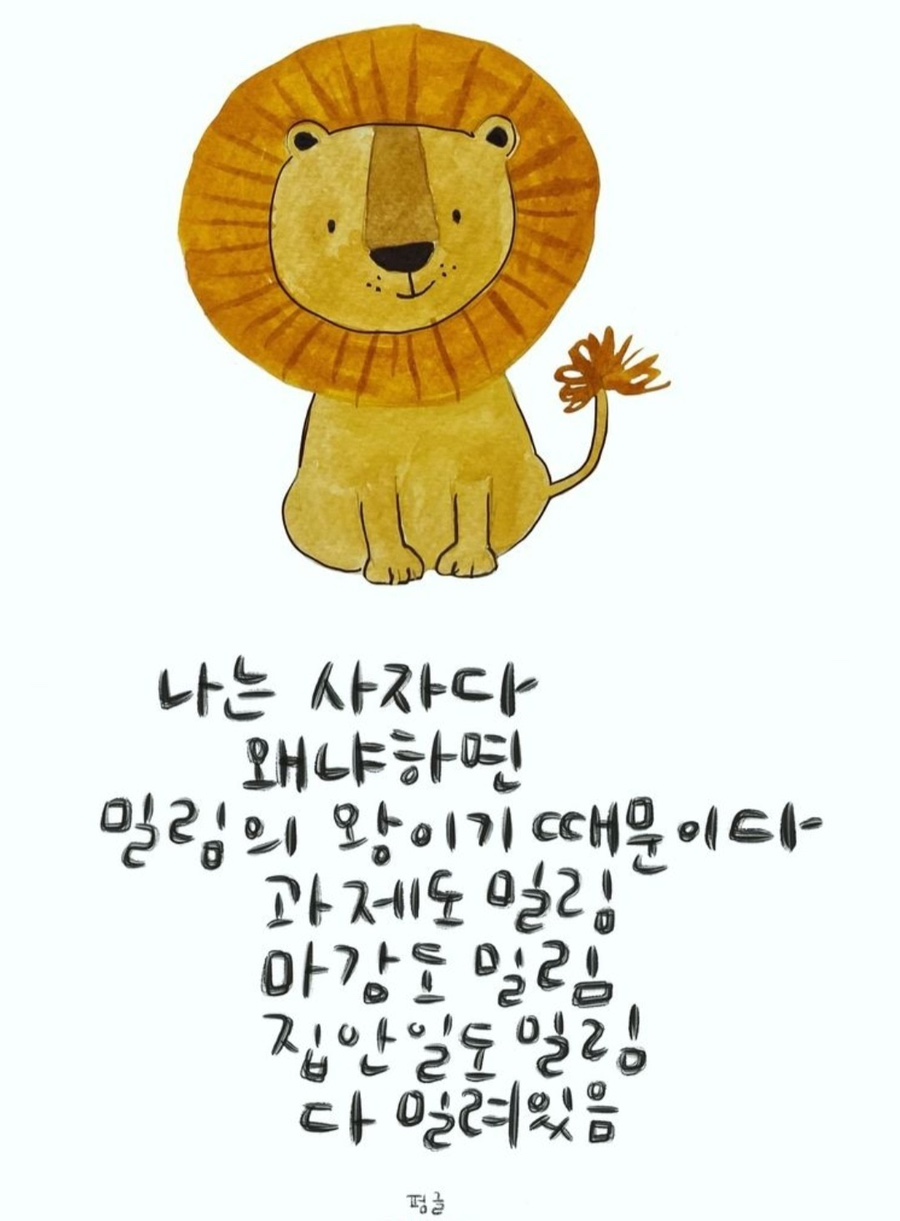 나는 사자다
왜냐하면
밀림의 왕이기 때문이다
과제도 밀림
마감도 밀림
집안일도 밀림
다 밀려있음
펌글